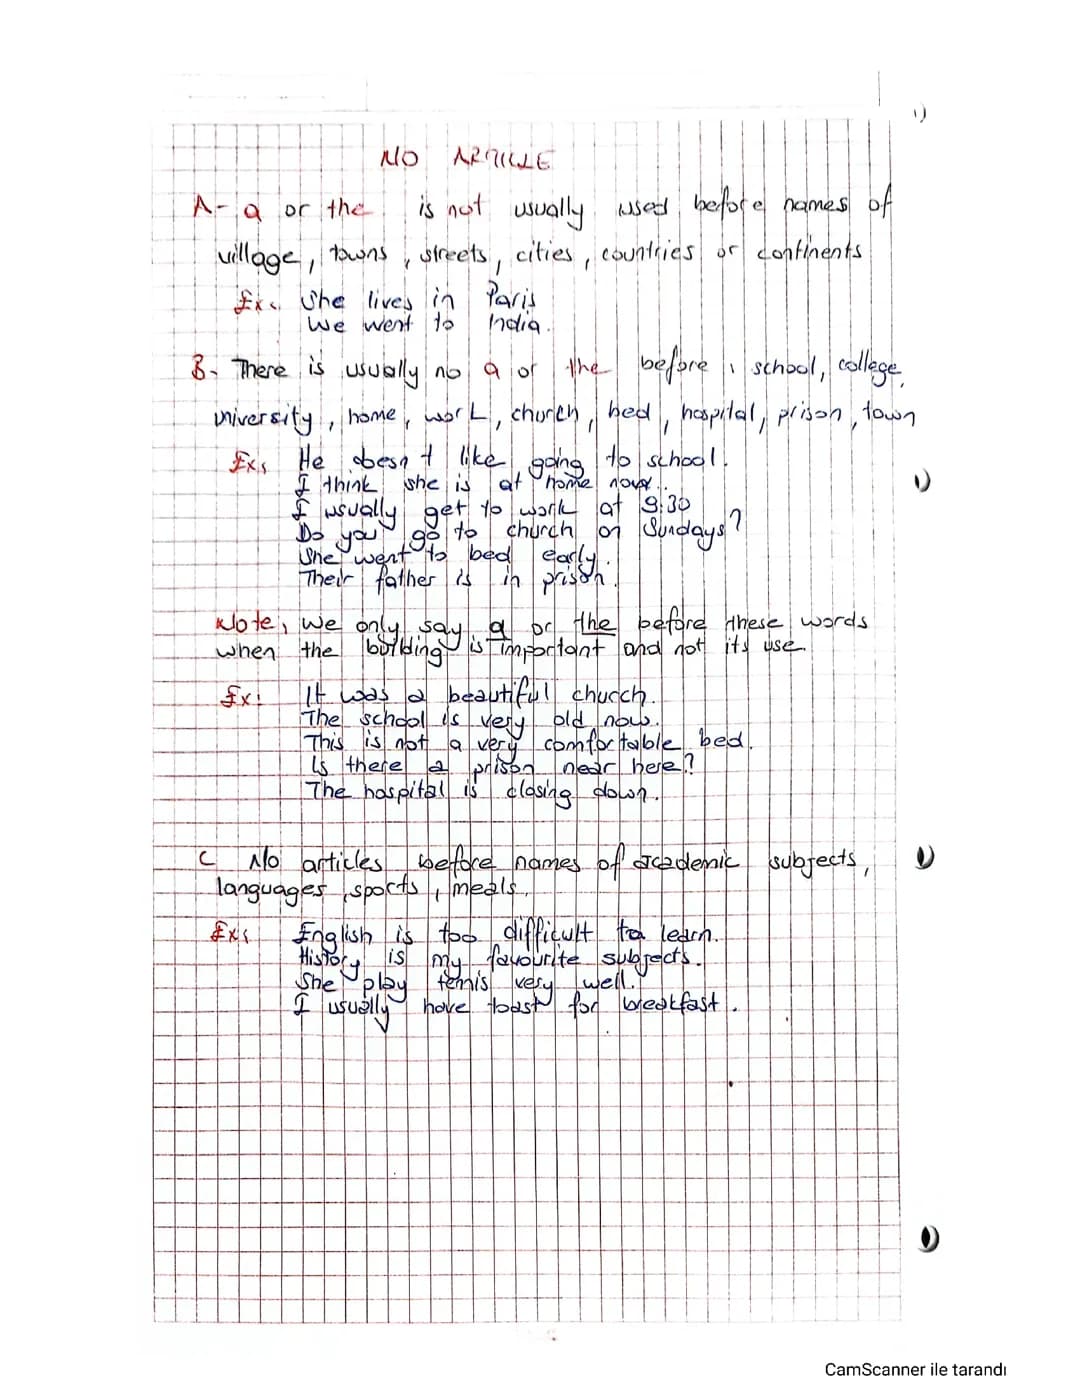 NO ARTICLE
A- a or the is not usually used before names of
village, towns, streets, cities, countries or continents
Ex: She lives in Paris
We went to India.
B- There is usually no a or the before, school, college,
university, home, work, church, bed, hospital, prison, town
Ex: He doesn't like going to school.
I think she is at home now.
I usually get to work at 9:30
Do you go to church on Sundays?
She went to bed early.
Their father is in prison.
Note, We only say a or the before these words
when the building is important and not its use.
Ex: It was a beautiful church.
The school is very old now.
This is not a very comfortable bed.
Is there a prison near here?
The hospital is closing down.
C No articles before names of academic subjects,
languages, sports, meals.
Ex: English is too difficult to learn.
History is my favourite subjects.
She play tennis very well.
I usually have toast for breakfast.
CamScanner ile tarandı